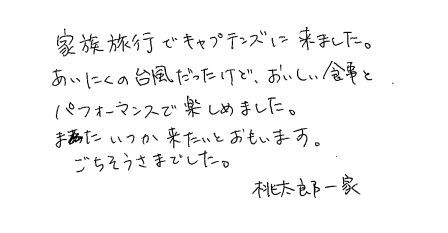 家族旅行でキャプテンズに来ました。
あいにくの台風だったけど、おいしい食事と
パフォーマンスで楽しめました。
またいつか来たいとおもいます。
ごちそうさまでした。
桃太郎一家